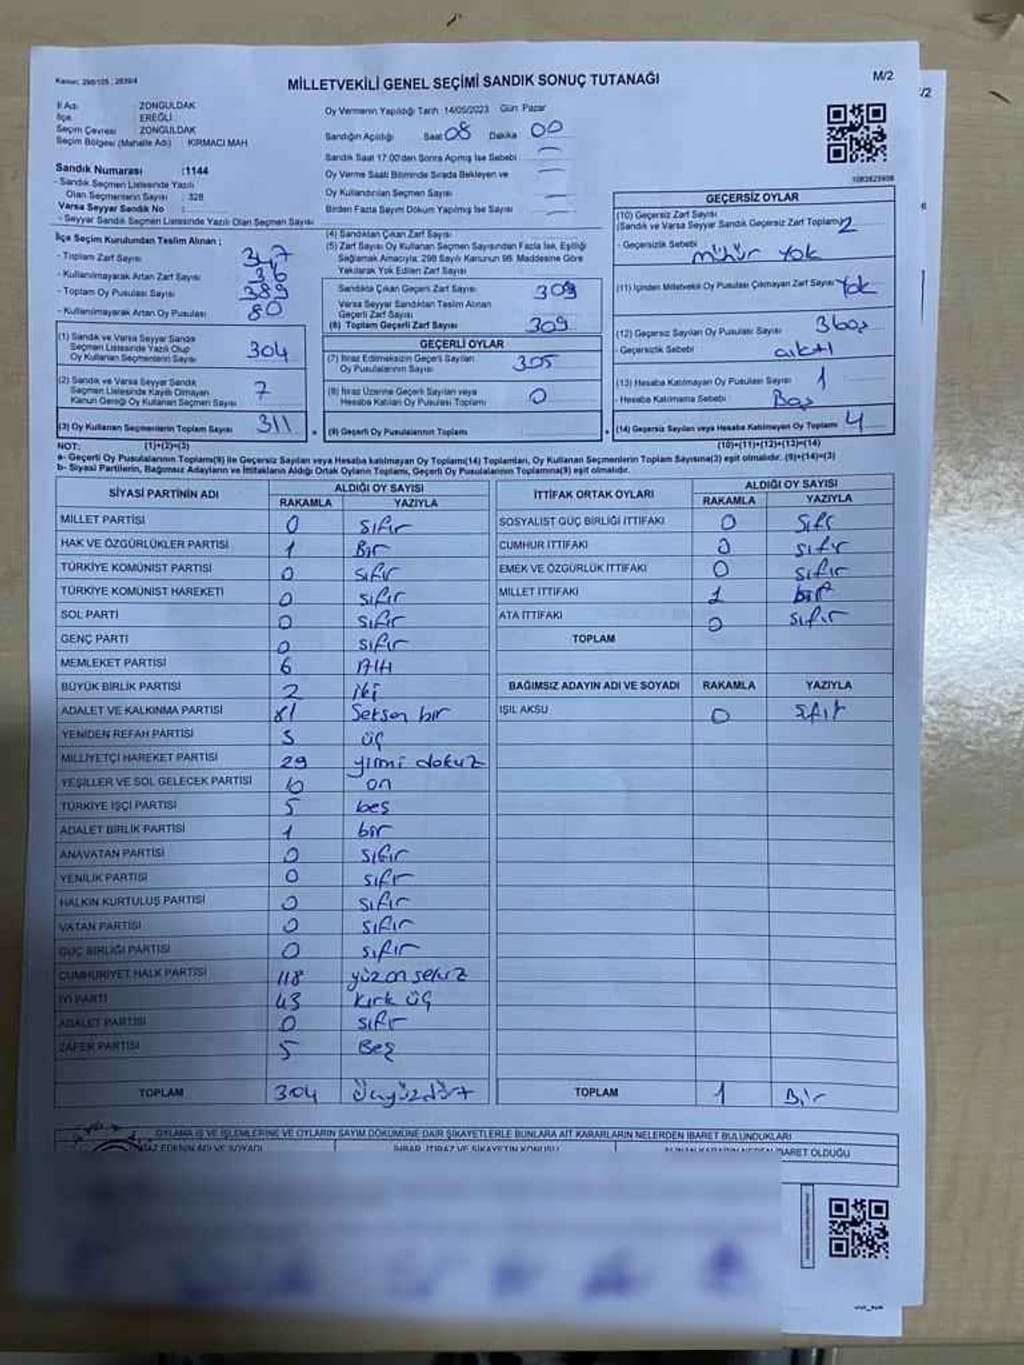 Kanun: 298/105 ; 2839/4
MİLLETVEKİLİ GENEL SEÇİMİ SANDIK SONUÇ TUTANAĞI
M/2
/2
İl Adı : ZONGULDAK
İlçe : EREĞLİ
Seçim Çevresi : ZONGULDAK
Seçim Bölgesi (Mahalle Adı) : KIRMACI MAH.
Sandık Numarası :1144
- Sandık Seçmen Listesinde Yazılı
Olan Seçmenlerin Sayısı : 328
Varsa Seyyar Sandık No :
- Seyyar Sandık Seçmen Listesinde Yazılı Olan Seçmen Sayısı
Oy Vermenin Yapıldığı Tarih: 14/05/2023 Gün: Pazar
Sandığın Açıldığı Saat 08 Dakika 00
Sandık Saat 17:00'den Sonra Açmış İse Sebebi
Oy Verme Saati Bitiminde Sırada Bekleyen ve
Oy Kullandırılan Seçmen Sayısı
Birden Fazla Sayım Döküm Yapılmış İse Sayısı
İlçe Seçim Kurulundan Teslim Alınan ;
- Toplam Zarf Sayısı 347
- Kullanılmayarak Artan Zarf Sayısı 36
- Toplam Oy Pusulası Sayısı 389
- Kullanılmayarak Artan Oy Pusulası 80
(1) Sandık ve Varsa Seyyar Sandık
Seçmen Listesinde Yazılı Olup
Oy Kullanan Seçmenlerin Sayısı 304
(2) Sandık ve Varsa Seyyar Sandık
Seçmen Listesinde Kayıtlı Olmayan
Kanun Gereği Oy Kullanan Seçmen Sayısı 7
(3) Oy Kullanan Seçmenlerin Toplam Sayısı 311
(4) Sandıktan Çıkan Zarf Sayısı
(5) Zarf Sayısı Oy Kullanan Seçmen Sayısından Fazla İse, Eşitliği
Sağlamak Amacıyla, 298 Sayılı Kanunun 98. Maddesine Göre
Yakılarak Yok Edilen Zarf Sayısı
Sandıkta Çıkan Geçerli Zarf Sayısı 309
Varsa Seyyar Sandıktan Teslim Alınan
Geçerli Zarf Sayısı
(6) Toplam Geçerli Zarf Sayısı 309
GEÇERLİ OYLAR
(7) İtiraz Edilmeksizin Geçerli Sayılan
Oy Pusulalarının Sayısı 305
(8) İtiraz Üzerine Geçerli Sayılan veya
Hesaba Katılan Oy Pusulası Toplamı 0
(9) Geçerli Oy Pusulalarının Toplamı
GEÇERSİZ OYLAR
(10) Geçersiz Zarf Sayısı
(Sandık ve Varsa Seyyar Sandık Geçersiz Zarf Toplamı) 2
- Geçersizlik Sebebi mühür yok
(11) İçinden Milletvekili Oy Pusulası Çıkmayan Zarf Sayısı Yok
(12) Geçersiz Sayılan Oy Pusulası Sayısı 3
- Geçersizlik Sebebi
(13) Hesaba Katılmayan Oy Pusulası Sayısı 1
- Hesaba Katılmama Sebebi Boş
(14) Geçersiz Sayılan veya Hesaba Katılmayan Oy Toplamı 4
NOT: (1)+(2)=(3) (10)+(11)+(12)+(13)=(14)
a- Geçerli Oy Pusulalarının Toplamı(9) ile Geçersiz Sayılan veya Hesaba katılmayan Oy Toplamı(14) Toplamları, Oy Kullanan Seçmenlerin Toplam Sayısına(3) eşit olmalıdır. (9)+(14)=(3)
b- Siyasi Partilerin, Bağımsız Adayların ve İttifakların Aldığı Ortak Oyların Toplamı, Geçerli Oy Pusulalarının Toplamına(9) eşit olmalıdır.
SİYASİ PARTİNİN ADI ALDIĞI OY SAYISI
RAKAMLA YAZIYLA
MİLLET PARTİSİ 0 sıfır
HAK VE ÖZGÜRLÜKLER PARTİSİ 1 Bir
TÜRKİYE KOMÜNİST PARTİSİ 0 sıfır
TÜRKİYE KOMÜNİST HAREKETİ 0 sıfır
SOL PARTİ 0 sıfır
GENÇ PARTİ 0 sıfır
MEMLEKET PARTİSİ 6 Altı
BÜYÜK BİRLİK PARTİSİ 2 iki
ADALET VE KALKINMA PARTİSİ 81 Seksen bir
YENİDEN REFAH PARTİSİ 3 üç
MİLLİYETÇİ HAREKET PARTİSİ 29 yirmi dokuz
YEŞİLLER VE SOL GELECEK PARTİSİ 10 on
TÜRKİYE İŞÇİ PARTİSİ 5 beş
ADALET BİRLİK PARTİSİ 1 bir
ANAVATAN PARTİSİ 0 sıfır
YENİLİK PARTİSİ 0 sıfır
HALKIN KURTULUŞ PARTİSİ 0 sıfır
VATAN PARTİSİ 0 sıfır
GÜÇ BİRLİĞİ PARTİSİ 0 sıfır
CUMHURİYET HALK PARTİSİ 118 yüzonsekiz
İYİ PARTİ 43 Kırk üç
ADALET PARTİSİ 0 sıfır
ZAFER PARTİSİ 5 Beş
TOPLAM 304 Üçyüzdört
İTTİFAK ORTAK OYLARI ALDIĞI OY SAYISI
RAKAMLA YAZIYLA
SOSYALİST GÜÇ BİRLİĞİ İTTİFAKI 0 sıfır
CUMHUR İTTİFAKI 0 sıfır
EMEK VE ÖZGÜRLÜK İTTİFAKI 0 sıfır
MİLLET İTTİFAKI 1 bir
ATA İTTİFAKI 0 sıfır
TOPLAM
BAĞIMSIZ ADAYIN ADI VE SOYADI RAKAMLA YAZIYLA
IŞIL AKSU 0 sıfır
TOPLAM 1 Bir
OYLAMA İŞ VE İŞLEMLERİNE VE OYLARIN SAYIM DÖKÜMÜNE DAİR ŞİKAYETLERLE BUNLARA AİT KARARLARIN NELERDEN İBARET BULUNDUKLARI
İHBAR, İTİRAZ VE ŞİKAYETİN KONUSU